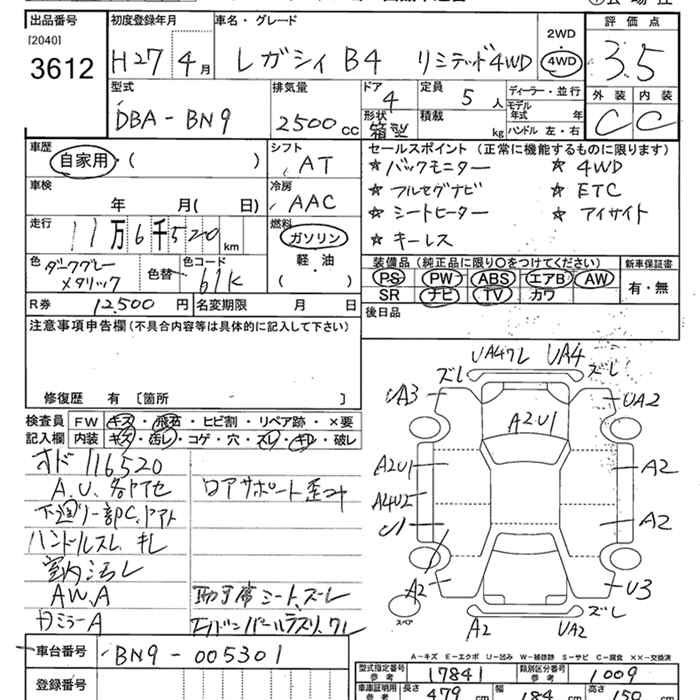 出品番号
[2040]
3612
初度登録年月
H27年4月
車名・グレード
レガシィ B4 リミテッド4WD
2WD
4WD
評価点
3.5
外装 内装
C C
型式
DBA-BN9
排気量
2500cc
ドア
4
形状
箱型
定員
5人
積載
kg
ディーラー・並行
モデル年式 年
ハンドル 左・右
車歴
自家用・( )
シフト
AT
車検
年 月( 日)
冷房
AAC
走行
11万6千520km
燃料
ガソリン
軽・油
( )
色 ダークグレーメタリック
色替
色コード
61K
R券 12,500円
名変期限 月 日
セールスポイント (正常に機能するものに限ります)
☆バックモニター ☆4WD
☆フルセグナビ ☆ETC
☆シートヒーター ☆アイサイト
☆キーレス
装備品(純正品に限り○をつけてください)
PS PW ABS エアB AW
SR ナビ TV カワ
新車保証書
有・無
後日品
注意事項申告欄(不具合内容等は具体的に記入して下さい)
修復歴 有 [箇所 ]
検査員記入欄
FW キズ・飛石・ヒビ割・リペア跡・×要
内装 キズ・汚レ・コゲ・穴・スレ・キレ・破レ
オド 116520
A.U.各キズ
下廻リ一部C.
ハンドルスレ.キレ
室内汚レ
AW.A
ロアサポート歪
助手席シート.ズーレ
UA4ワレ UA4
ズレ ズレ
UA3 UA2
A2U1
A2U1 A2
A4U2
U1 A2
A2 U3
ズレ
A2 UA2
スペア
A-キズ E-エクボ U-凹み W-補修跡 S-サビ C-腐食 ××-交換済
車台番号 BN9-005301
登録番号
型式指定番号 参考 17841
類別区分番号 参考 1009
車庫証明用 参考 長さ 479cm 幅 184cm 高さ 150cm